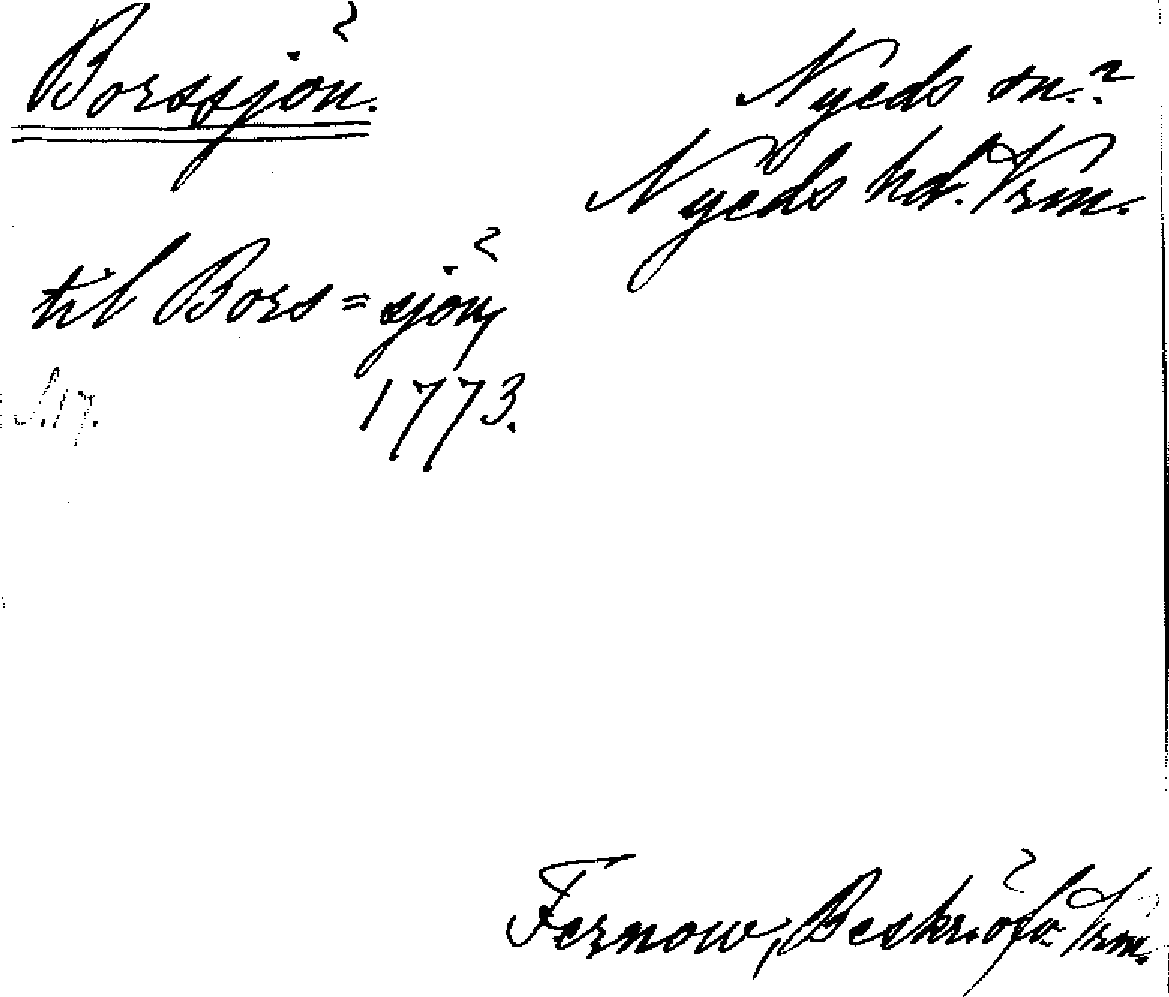 Borssjön.
Nyeds sn.?
Nyeds hd. Vrm.
til Bors=sjön,
1773.
s. 17.
Fernow, Beskr. öfv. Vrm.